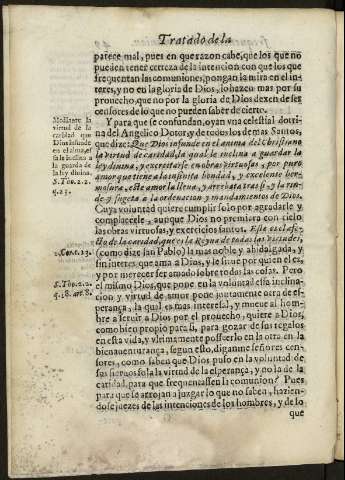 Tratado de la
parece mal, pues en que razon cabe, que los que no
pueden tener certeza de la intencion con que los que
frequentan las comuniones, pongan la mira en el in-
teres, y no en la gloria de Dios, lo hazen mas por su
prouecho, que no por la gloria de Dios dexen de ser
censores de lo que no pueden saber de cierto.
Y para que se confundan, oyan vna celestial dotri-
na del Angelico Dotor, y de todos los demas Santos,
que dize: Que Dios infunde en el anima del Christiano
la virtud de caridad, la qual le inclina a guardar la
ley diuina, y exercitarse en obras virtuosas, por puro
amor que tiene a la infinita bondad, y excelente her-
mosura, este amor la lleua, y arrebata tras si, y la rin-
de y sugeta a la ordenacion y mandamiento de Dios.
Cuya voluntad quiere cumplir solo por agradarle y
complacerle, aunque Dios no premiara con cielo
las obras virtuosas, y exercicios santos. Este es el efe-
cto de la caridad, que es la Reyna de todas las virtudes,
(como dize san Pablo) la mas noble y ahidalgada, y
sin interes que ama a Dios, y le sirue por quien el es,
y por merecer ser amado sobre todas las cosas. Pero
el mismo Dios, que pone en la voluntad esta inclina-
cion y virtud de amor pone juntamente otra de es-
perança, la qual es mas interesal, y mueue al hom-
bre a seruir a Dios por el prouecho, quiere a Dios,
como bien propio para si, para gozar de sus regalos
en esta vida, y vltimamente posseerlo en la otra en la
bienauenturança, segun esto, diganme señores censo-
res, como saben que Dios puso en la voluntad de
sus sieruos sola la virtud de la esperança, y no la de la
caridad, para que frequentassen la comunion? Pues
para que se arrojan a juzgar lo que no saben, hazien-
dose juezes de las intenciones de los hombres, y de lo
que
Mediante la
virtud de la
caridad que
Dios infunde
en el alma, es-
ta se inclina a
la guarda de
la ley diuina.
S. Tho. 2. 2.
q. 23.
1. Cor. c. 13.
S. Tho. 2. 2.
q. 18. art. 8.